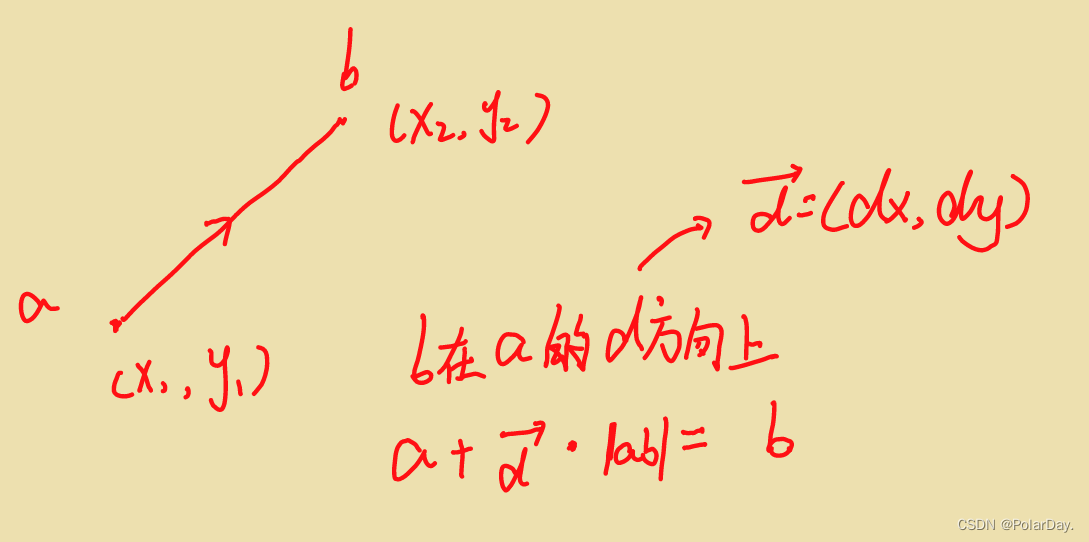 b
(x₂, y₂)
d⃗=(dx, dy)
a
(x₁, y₁)
b在a的d方向上
a + d⃗ · |ab| = b
CSDN @PolarDay.